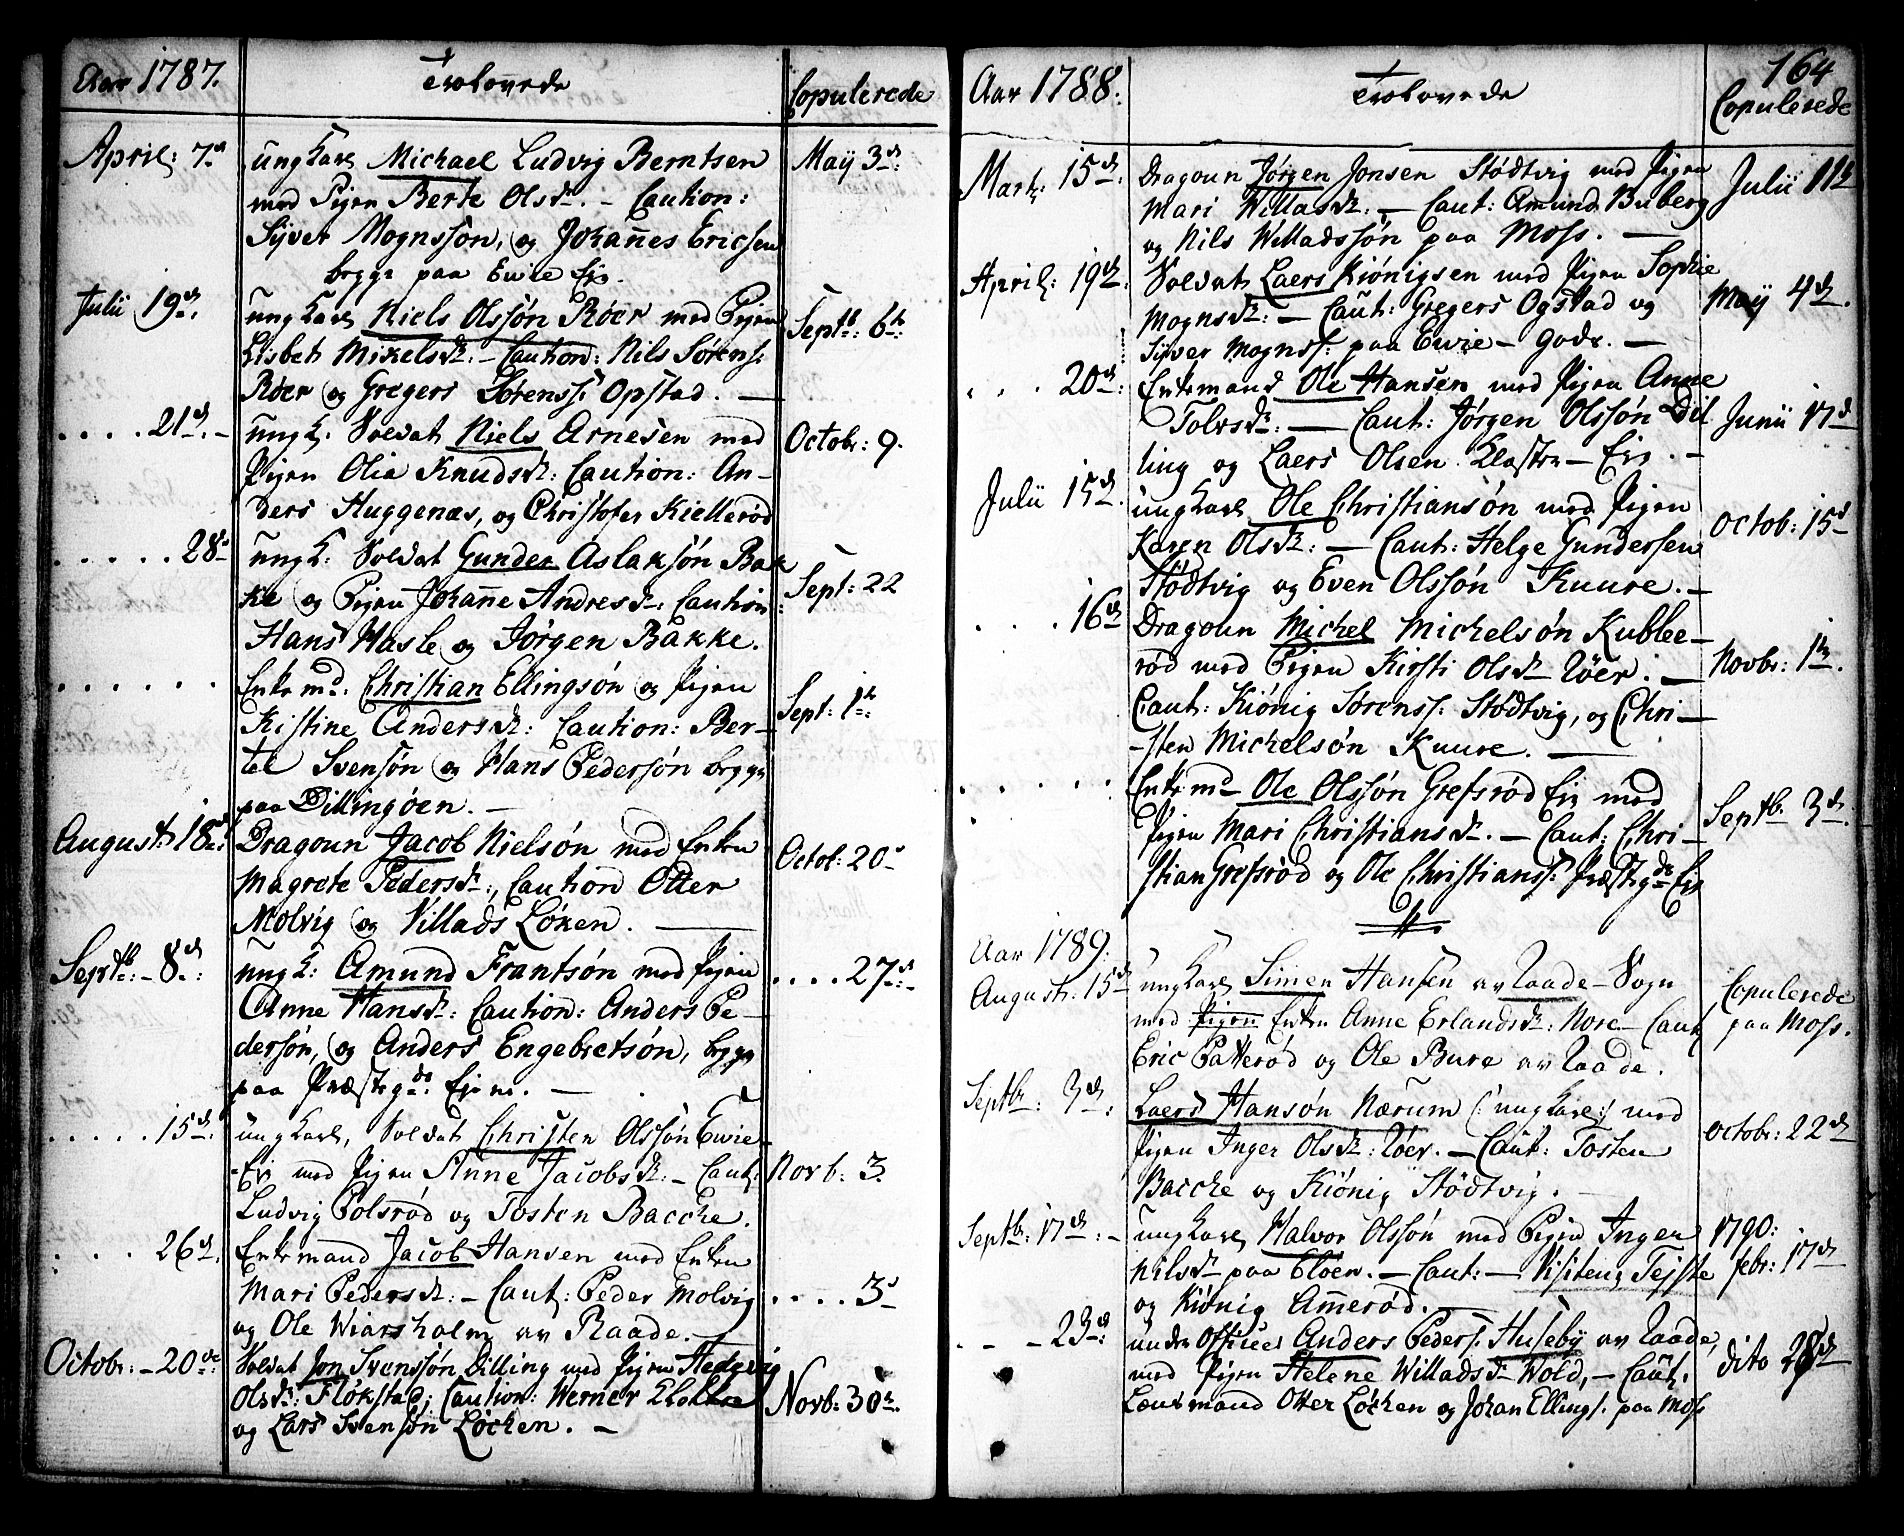 Aar 1787.
Trolovede
Copulerede
April: 7de
ungkarl Michael Ludvig Berntsen
med Pigen Berte Olsdr. - Caution:
Syver Mognssøn, og Johannes Ericsen
begge paa Ewie Eje.
May 3de:
Julii 19de.
ungkarl Niels Olssøn Røer med Pigen
Lisbet Mikelsdr: - Caution: Nils Sørens:
Røer og Gregers Sørenss: Opstad. -
Septb: 6te:
. . . . 21de. -
ungk: Soldat Niels Arnesen med
Pigen Olia Knudsdr: Caution: An-
ders Huggenæs, og Christofer Kiellerød
Octobr: 9.
. . . . . 28de
ungk: Soldat Gunder Aslaksøn Bak
ke og Pigen Johanne Andresdr: Caution
Hans Hasle og Jørgen Bakke.
Sept: 22
. . . . . .
Enkemd. Christian Ellingsøn og Pigen
Kistine Andersdr: Caution: Ber-
tel Svensøn og Hans Pedersøn begge
paa Dillingøen. -
Sept: 1te:
August: 18de:
Dragoun Jacob Nielsøn med Enken
Magrete Pedersdr:, Caution Otter
Molvig og Villads Løken. -
Octob: 20de
Septb: - 8de:
ungk: Amund Frantsøn med Pigen
Anne Hansdr: Caution: Anders Pe-
dersøn, og Anders Engebretsøn, begge
paa Præstegds: Eje. -
. . . . 27de: -
. . . . . 15de:
ungkarl, Soldat Christen Olssøn Ewie-
-Eje med Pigen Anne Jacobsdr: - Caut:
Ludvig Polsrød og Tosten Bacche.
Novb: 3.
. . . . 26de.
Enkemand Jacob Hansen med Enken
Mari Pedersdr: - Caut: Peder Molvig
og Ole Wiarsholm av Raade. -
. . . . 3de
Octobr: - 20de:
Soldat Jon Svenssøn Dilling med Pigen Hedevig
Olsdr: Fløkstad; Caution: Werner
og Lars Svensøn Løchen. -
Novb: 30te.
164
Aar 1788:
Trolovede
Copulerede
Marti: 15de:
Dragoun Jørgen Jonsen Stødtvig med Pigen
Mari Willasdr: - Caut: Amund Buberg
og Nils Willadssøn paa Moss. -
Julii 11te
April: 19de.
Soldat Laers Kiönigsen med Pigen Sophie
Mognsdr: - Caut: Gregers Ogstad og
Syver Mognss: paa Ewie - Gods. -
May 4de.
. . . 20de:
Enkemand Ole Hansen med Pigen Anne
Tolvsdr: - Caut: Jørgen Olssøn Dil
ling og Laers Olsen Kloster - Eje. -
Junii 17de
Julii 15de.
ungkarl Ole Christiansøn med Pigen
Karen Olsdr: - Caut: Helge Gundersen
Stødtvig og Even Olssøn Kuure. -
Octob: 15de
. . . . 16de
Dragoun Michel Michelsøn Kublee-
rød med Pigen Kirsti Olsdr Røer. -
Caut: Kiönig Sørenss: Stødtvig, og Chri-
-sten Michelsøn Kuure. -
Novbr: 1te.
. . . . .
Enkemd Ole Olssøn Grefsrød Eje med
Pigen Mari Christiansdr. - Caut: Chri-
stian Grefsrød og Ole Christianss: Præstegds Eje
Septb. 3de.
Aar 1789:
August: 15de
ungkarl Simen Hansen av Raade-Sogn
med Pigen Enken Anne Erlandsdr: Nore - Caut:
Eric Patterød og Ole Bure av Raade.
Copulerede
paa Moss.
Septbr: 3de.
Laers Hansøn Nærum (:ungkarl:) med
Pigen Inger Olsdr: Røer. - Caut: Tosten
Bacche og Kiönig Stødtvig. -
Octobr: 22de
Septbr: 17de: -
ungkarl Halvor Olssøn med Pigen Inger
Nilsdr paa Eløen. - Caut: - Visiteur Tejste
og Kiönig Ammerød. -
1790:
febr: 17de
. - - 23de:
under Officer Anders Peders: Huseby av Raade,
med Pigen Helene Willadsdr Wold, - Caut:
Lensmand Otter Løchen og Johan Ellings. paa Moss
dito 28de